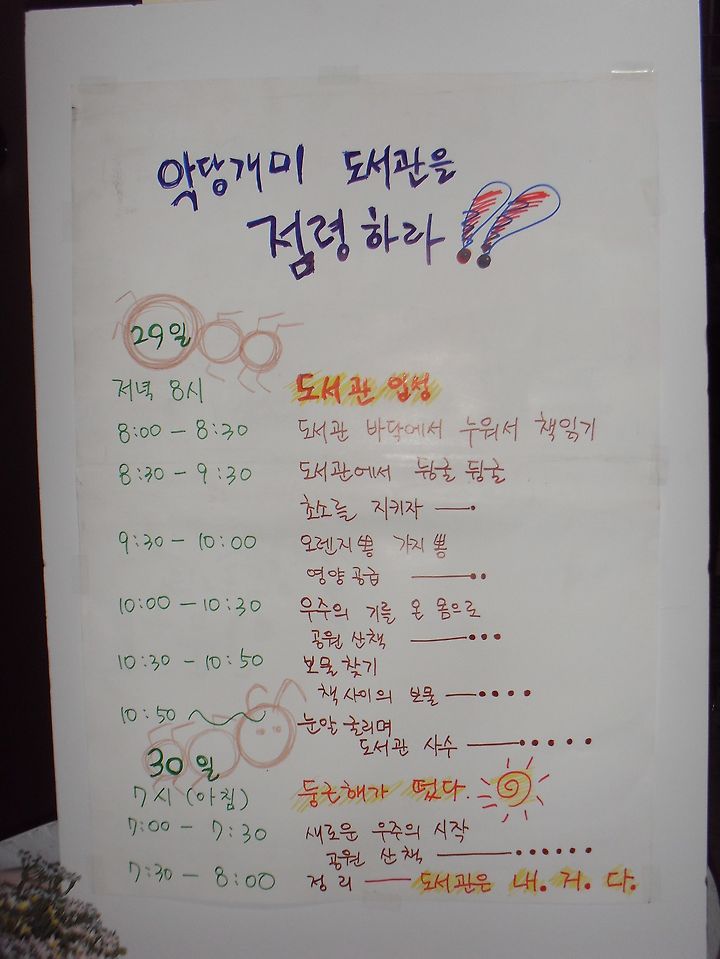 악당개미 도서관을
점령하라!!
29일
저녁 8시 도서관 입성
8:00 - 8:30 도서관 바닥에서 누워서 책읽기
8:30 - 9:30 도서관에서 뒹굴 뒹굴
초소를 지키자 —•
9:30 - 10:00 오렌지뽕 가지뽕
영양공급 —••
10:00 - 10:30 우주의 기를 온 몸으로
공원 산책 —•••
10:30 - 10:50 보물찾기
책 사이의 보물 —••••
10:50 ~ 눈알 굴리며
도서관 사수 —•••••
30일
7시 (아침) 둥근해가 떴다.
7:00 - 7:30 새로운 우주의 시작
공원 산책 —••••••
7:30 - 8:00 정리 — 도서관은 내. 거. 다.